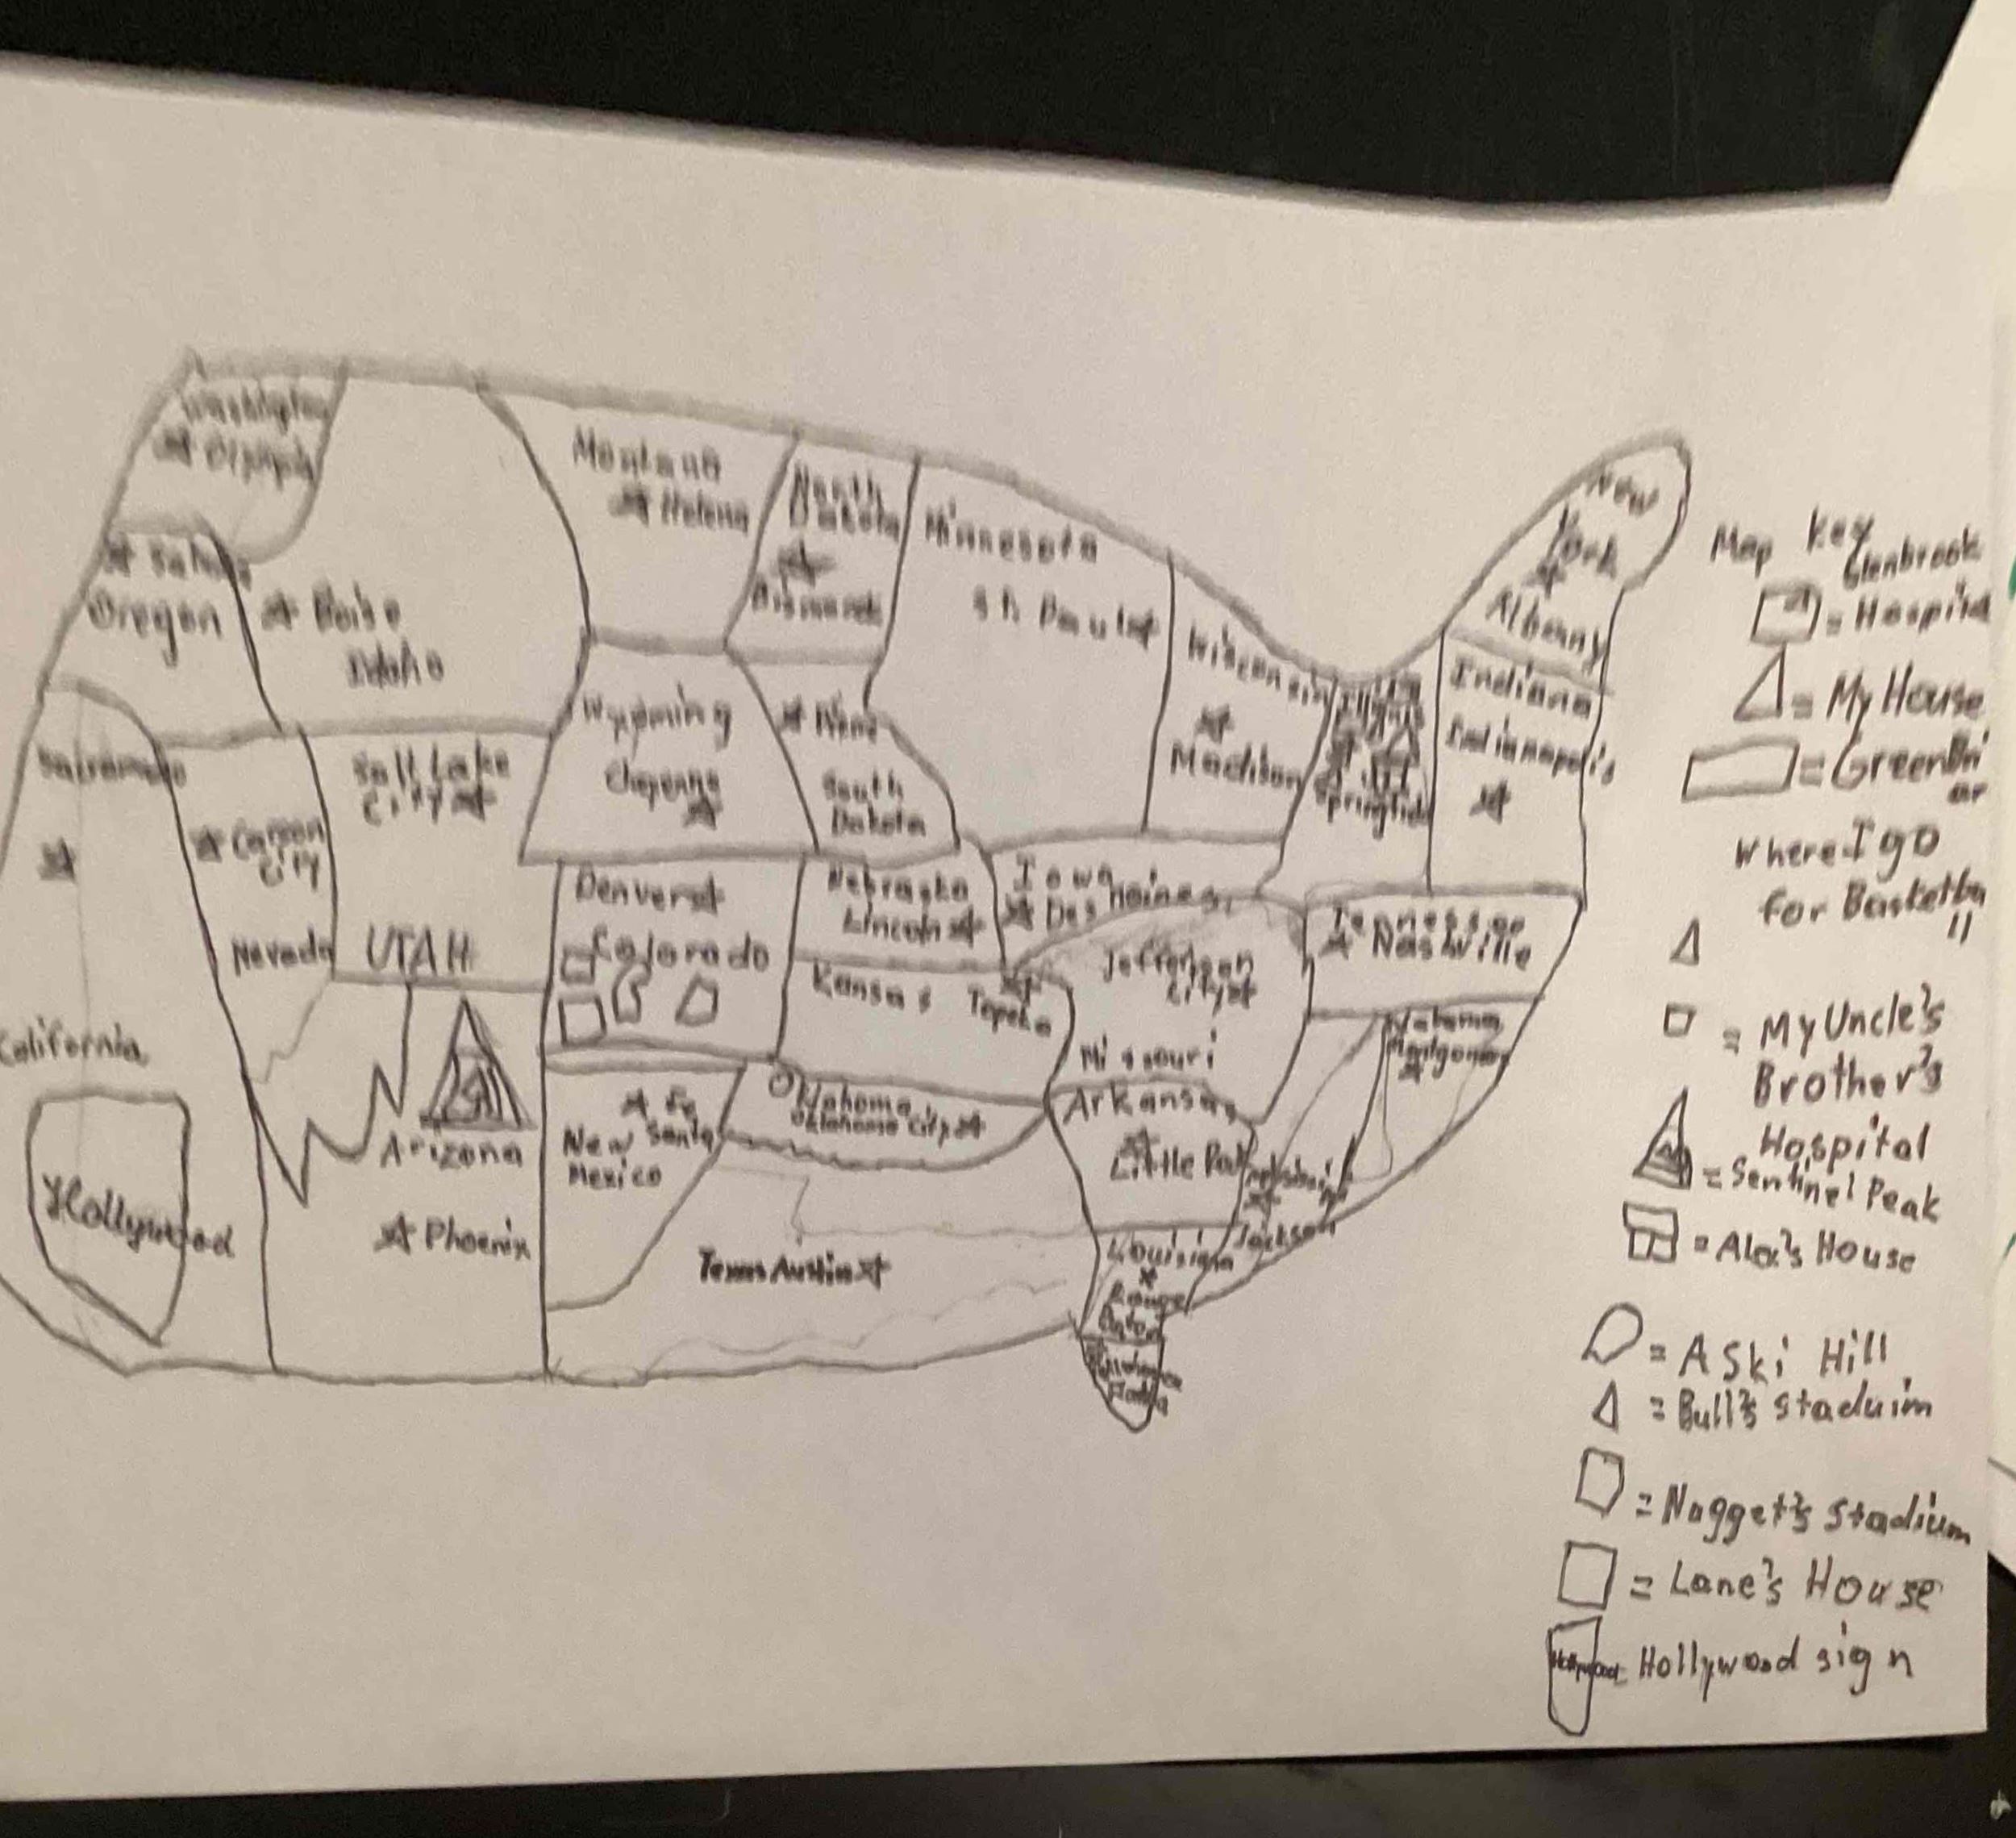 Washington
Olympia
Oregon
Boise
Idaho
Montana
Helena
North
Dakota
Bismarck
Minnesota
St Paul
Wisconsin
Madison
New
York
Albany
Indiana
Indianapolis
Sacramento
California
Hollywood
Carson
City
Nevada
Salt Lake
City
UTAH
Wyoming
Cheyenne
South
Dakota
Denver
Colorado
Nebraska
Lincoln
Iowa
Des Moines
Kansas Topeka
Jefferson
City
Missouri
Tennessee
Nashville
Arizona
Phoenix
Fe
Santa
New
Mexico
Oklahoma
Oklahoma City
Arkansas
Little
Jackson
Texas Austin
Map Key
Glenbrook
= Hospital
= My House
= GreenBri
ar
Where I go
for Basketba
ll
= My Uncle's
Brother's
Hospital
= Sentinel Peak
= Alex's House
= A Ski Hill
= Bull's staduim
= Nugget's stadium
= Lane's House
Hollywood sign